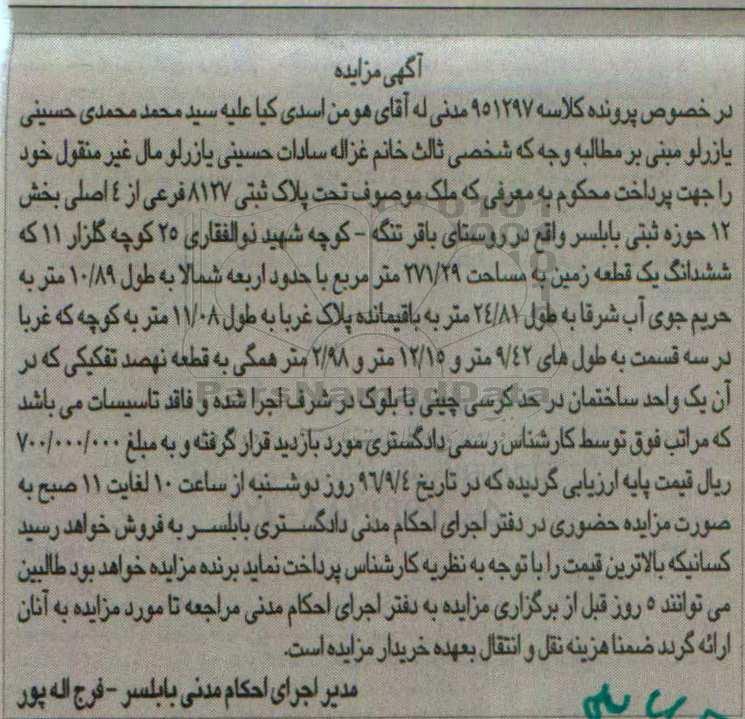 آگهی مزایده
در خصوص پرونده کلاسه ۹۵۱۲۹۷ مدنی له آقای هومن اسدی کیا علیه سید محمد محمدی حسینی
یازرلو مبنی بر مطالبه وجه که شخصی ثالث خانم غزاله سادات حسینی یازرلو مال غیر منقول خود
را جهت پرداخت محکوم به معرفی که ملک موصوف تحت پلاک ثبتی ۸۱۲۷ فرعی از ٤ اصلی بخش
۱۲ حوزه ثبتی بابلسر واقع در روستای باقر تنگه - کوچه شهید ذوالفقاری ۲۵ کوچه گلزار ۱۱ که
ششدانگ یک قطعه زمین به مساحت ۲۷۱/۲۹ متر مربع با حدود اربعه شمالا به طول ۱۰/۸۹ متر به
حریم جوی آب شرقا به طول ۲٤/۸۱ متر به باقیمانده پلاک غربا به طول ۱۱/۰۸ متر به کوچه که غربا
در سه قسمت به طول های ۹/٤۲ متر و ۱۲/۱۵ متر و ۲/۹۸ متر همگی به قطعه نهصد تفکیکی که در
آن یک واحد ساختمان در حد کرسی چینی با بلوک در شرف اجرا شده و فاقد تاسیسات می باشد
که مراتب فوق توسط کارشناس رسمی دادگستری مورد بازدید قرار گرفته و به مبلغ ۷۰۰/۰۰۰/۰۰۰
ریال قیمت پایه ارزیابی گردیده که در تاریخ ۹٦/۹/٤ روز دوشنبه از ساعت ۱۰ لغایت ۱۱ صبح به
صورت مزایده حضوری در دفتر اجرای احکام مدنی دادگستری بابلسر به فروش خواهد رسید
کسانیکه بالاترین قیمت را با توجه به نظریه کارشناس پرداخت نماید برنده مزایده خواهد بود طالبین
می توانند ۵ روز قبل از برگزاری مزایده به دفتر اجرای احکام مدنی مراجعه تا مورد مزایده به آنان
ارائه گردد ضمنا هزینه نقل و انتقال بعهده خریدار مزایده است.
مدیر اجرای احکام مدنی بابلسر - فرج اله پور
ParsNamadData